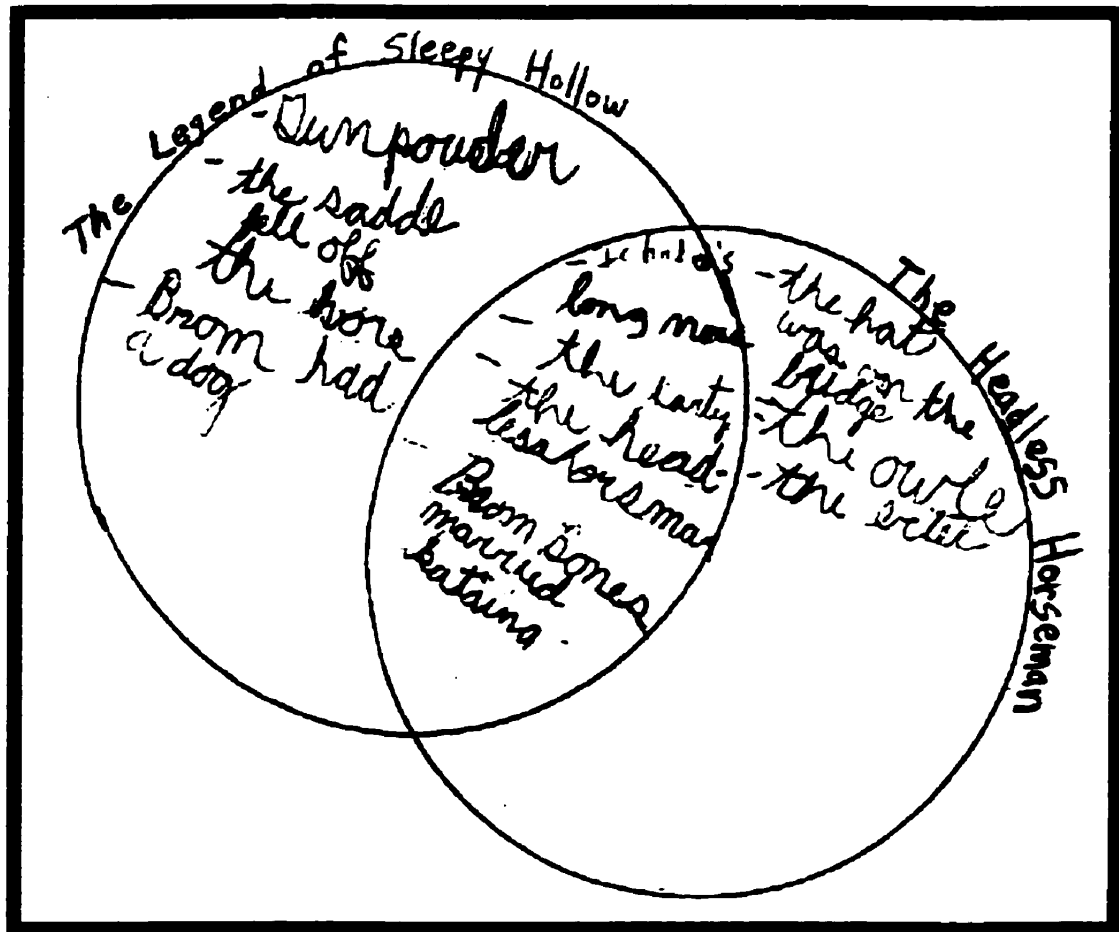 The Legend of Sleepy Hollow
- Gunpouder
- the saddl
fell off
the hore
- Brom had
a dog
-
long nose
- the
- the head-
lesshorsman
- Brom Bones
married
katsina
The Headless Horseman
- the hat
was on the
bridge
- the owle
- the